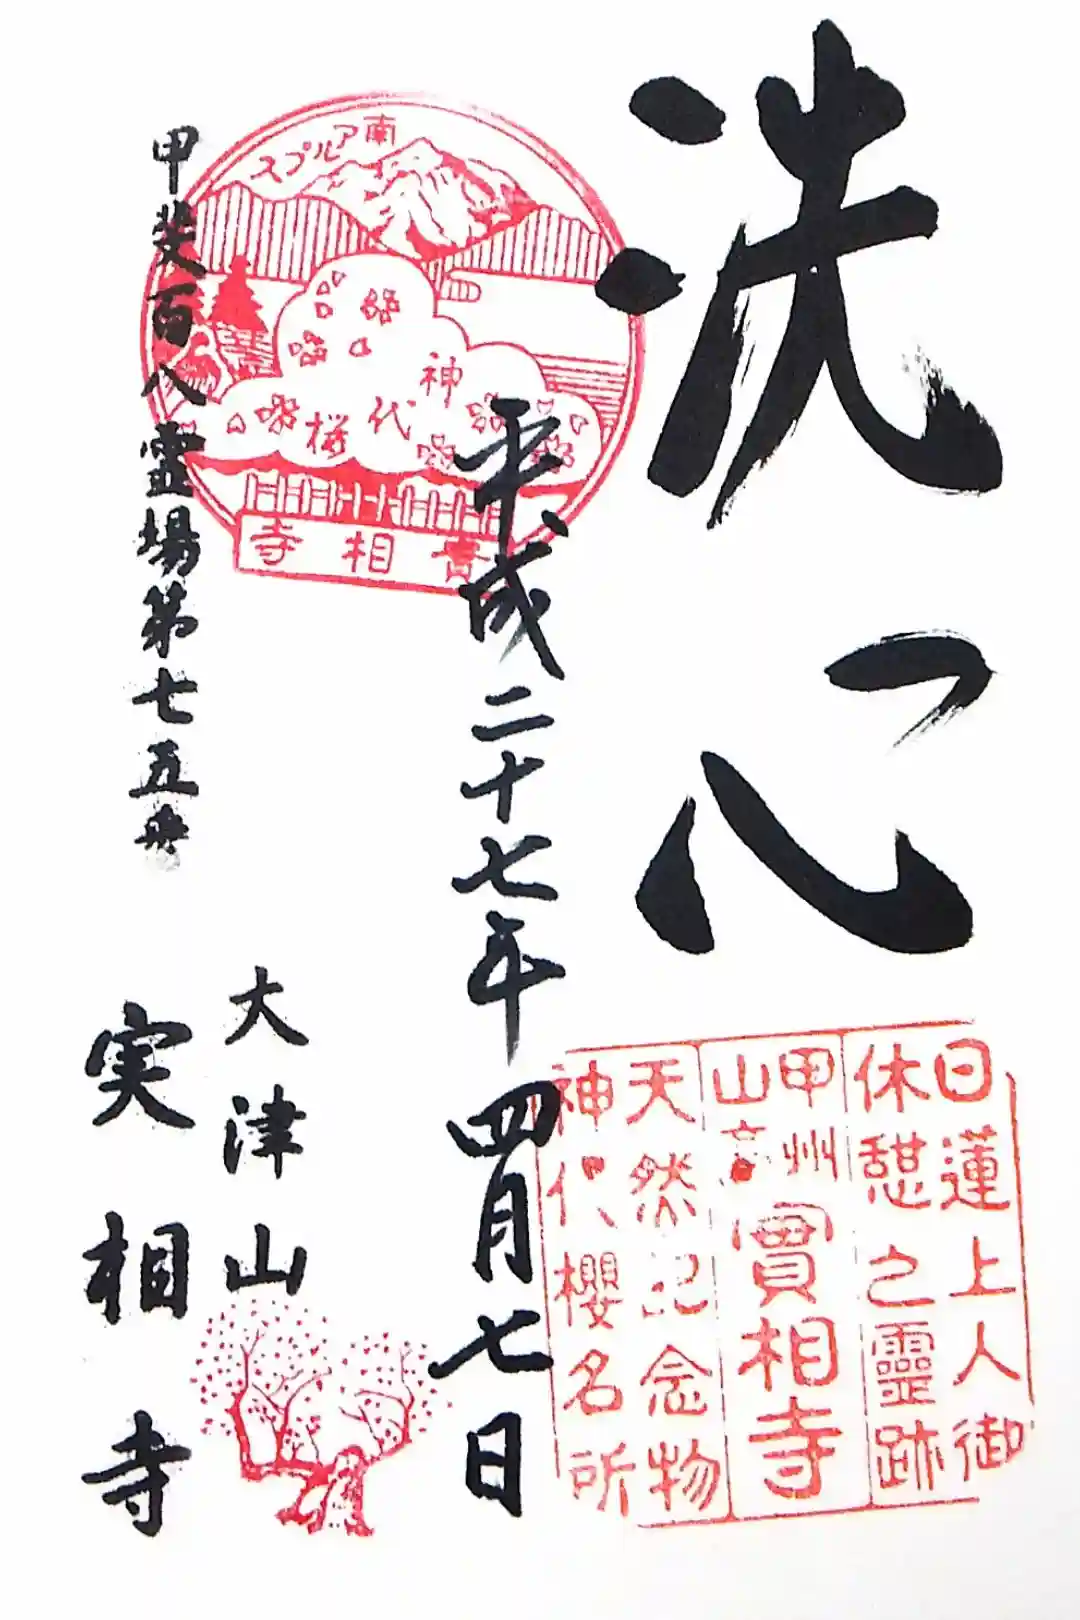 洗心
日蓮上人御
休憩之霊跡
甲州
山高
實相寺
天然記念物
神代櫻名所
平成二十七年四月七日
南アルプス
神代桜
實相寺
甲斐百八霊場第七五番
大津山
実相寺